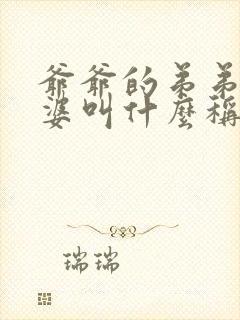 爺爺的弟弟
婆叫什麼稱
瑞瑞